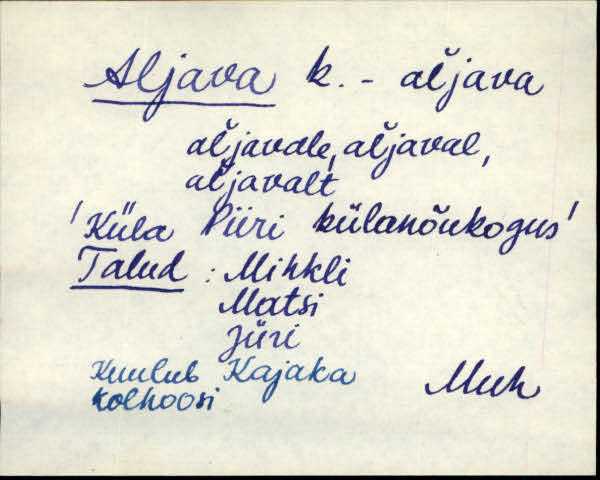 Aljava k. - aľjava
aľjavale, aľjaval,
aľjavalt
'Küla Piiri külanõukogus'
Talud : Mihkli
Matsi
Jüri
Kuulub Kajaka
kolhoosi
Muh